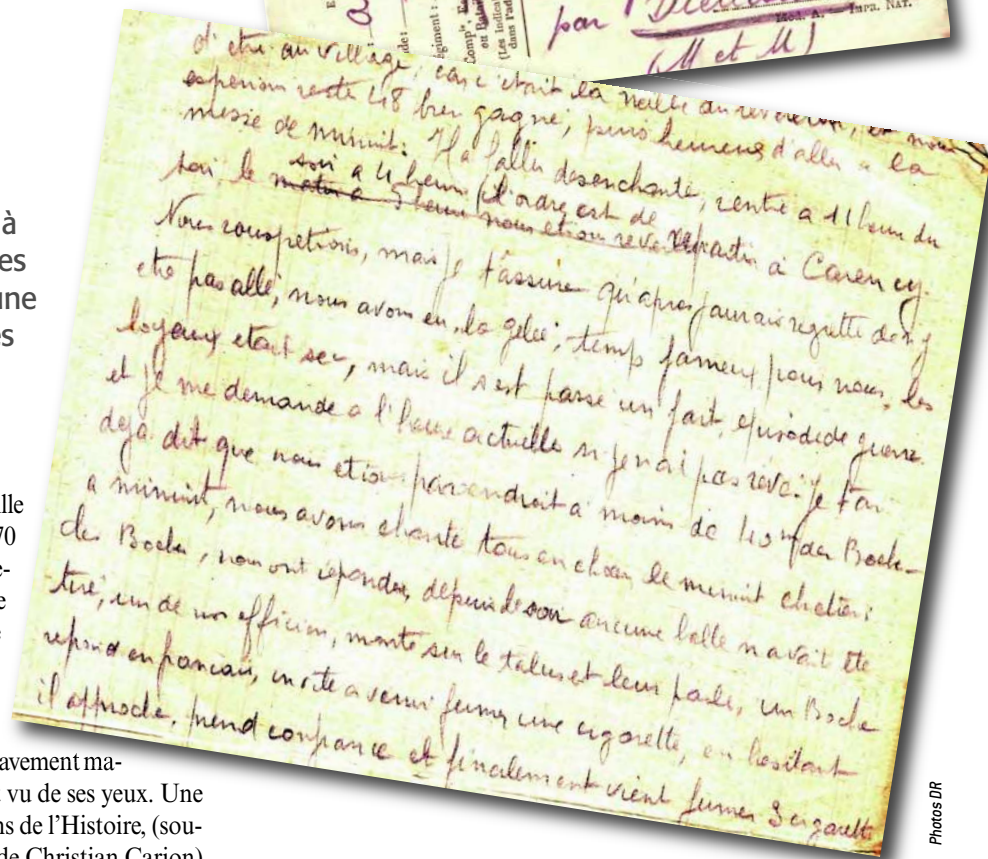 par Dieulou
(M et M)
Mod. A. — Impr. Nat.
égiment :
Comp^ie, E
ou Bat
(Les indicat
dans l'ad
d'etre au village, car c'etait la veille du reveillon, et nous
esperions reste 48 bien gagné, puis heureux d'aller a la
messe de minuit. Il a fallu desenchante, rentre a 11 heures du
soir, le matin a 5 heures nous etions reve
soir a 4 heures (l'ordre est de repartir a Carency.
Nous rouspetions, mais je t'assure qu'apres j'aurais regrette de n y
etre pas allé, nous avons eu la gelée, temps fameux pour nous, les
boyaux etait sec, mais il s est passé un fait, episode de guerre
et je me demande a l'heure actuelle si je n ai pas revé. Je t'ai
deja dit que nous etions par endroit a moins de 40 m des Boche
a minuit, nous avons chante tous en choeur le minuit chretien
des Boches, nous ont repondu, depuis le soir aucune balle n avait ete
tiré, un de nos officiers, monte sur le talus et leur parle, un Boche
repond en francais, invite a venir fumer une cigarette, en hesitant
il approche, prend confiance et finalement vient fumer 3 cigarette
à
es
une
s
ille
70
e-
e
avement ma-
vu de ses yeux. Une
ns de l'Histoire, (sou-
de Christian Carion)
Photos DR